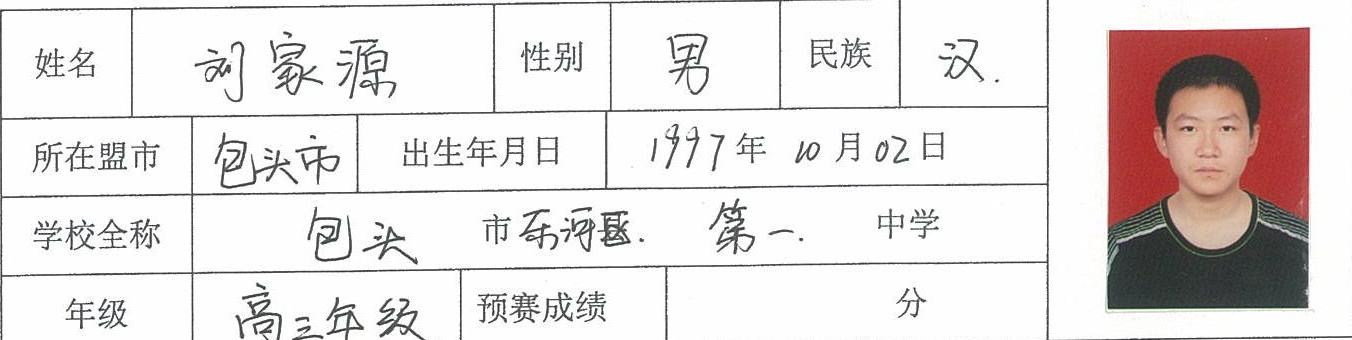 姓名 刘家源 性别 男 民族 汉.
所在盟市 包头市 出生年月日 1997年 10月02日
学校全称 包头 市东河区. 第一. 中学
年级 高三年级 预赛成绩 分